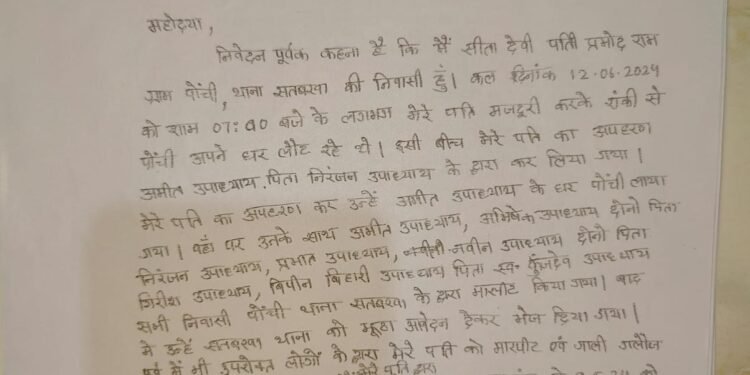 महोदया,
निवेदन पूर्वक कहना है कि मैं सीता देवी पति प्रमोद राम
ग्राम पोंची, थाना सतबरवा की निवासी हुँ। कल दिनांक 12.06.2024
को शाम 07:00 बजे के लगभग मेरे पति मजदुरी करके रांकी से
पोंची अपने घर लौट रहे थे। इसी बीच मेरे पति का अपहरण
अमीत उपाध्याय पिता निरंजन उपाध्याय के द्वारा कर लिया गया।
मेरे पति का अपहरण कर उन्हें अमीत उपाध्याय के घर पोंची लाया
गया। वहाँ पर उनके साथ अमीत उपाध्याय, अभिषेक उपाध्याय दोनो पिता
निरंजन उपाध्याय, प्रभात उपाध्याय, नवीन उपाध्याय दोनो पिता
गिरीश उपाध्याय, बिपीन बिहारी उपाध्याय पिता स्व० कुंजदेव उपाध्याय
सभी निवासी पोंची थाना सतबरवा के द्वारा मारपीट किया गया। बाद
मे उन्हें सतबरवा थाना को झूठा आवेदन देकर भेज दिया गया।
पूर्व में भी उपरोक्त लोगों के द्वारा मेरे पति को मारपीट एवं गाली गलौज
मेरे पति द्वारा को